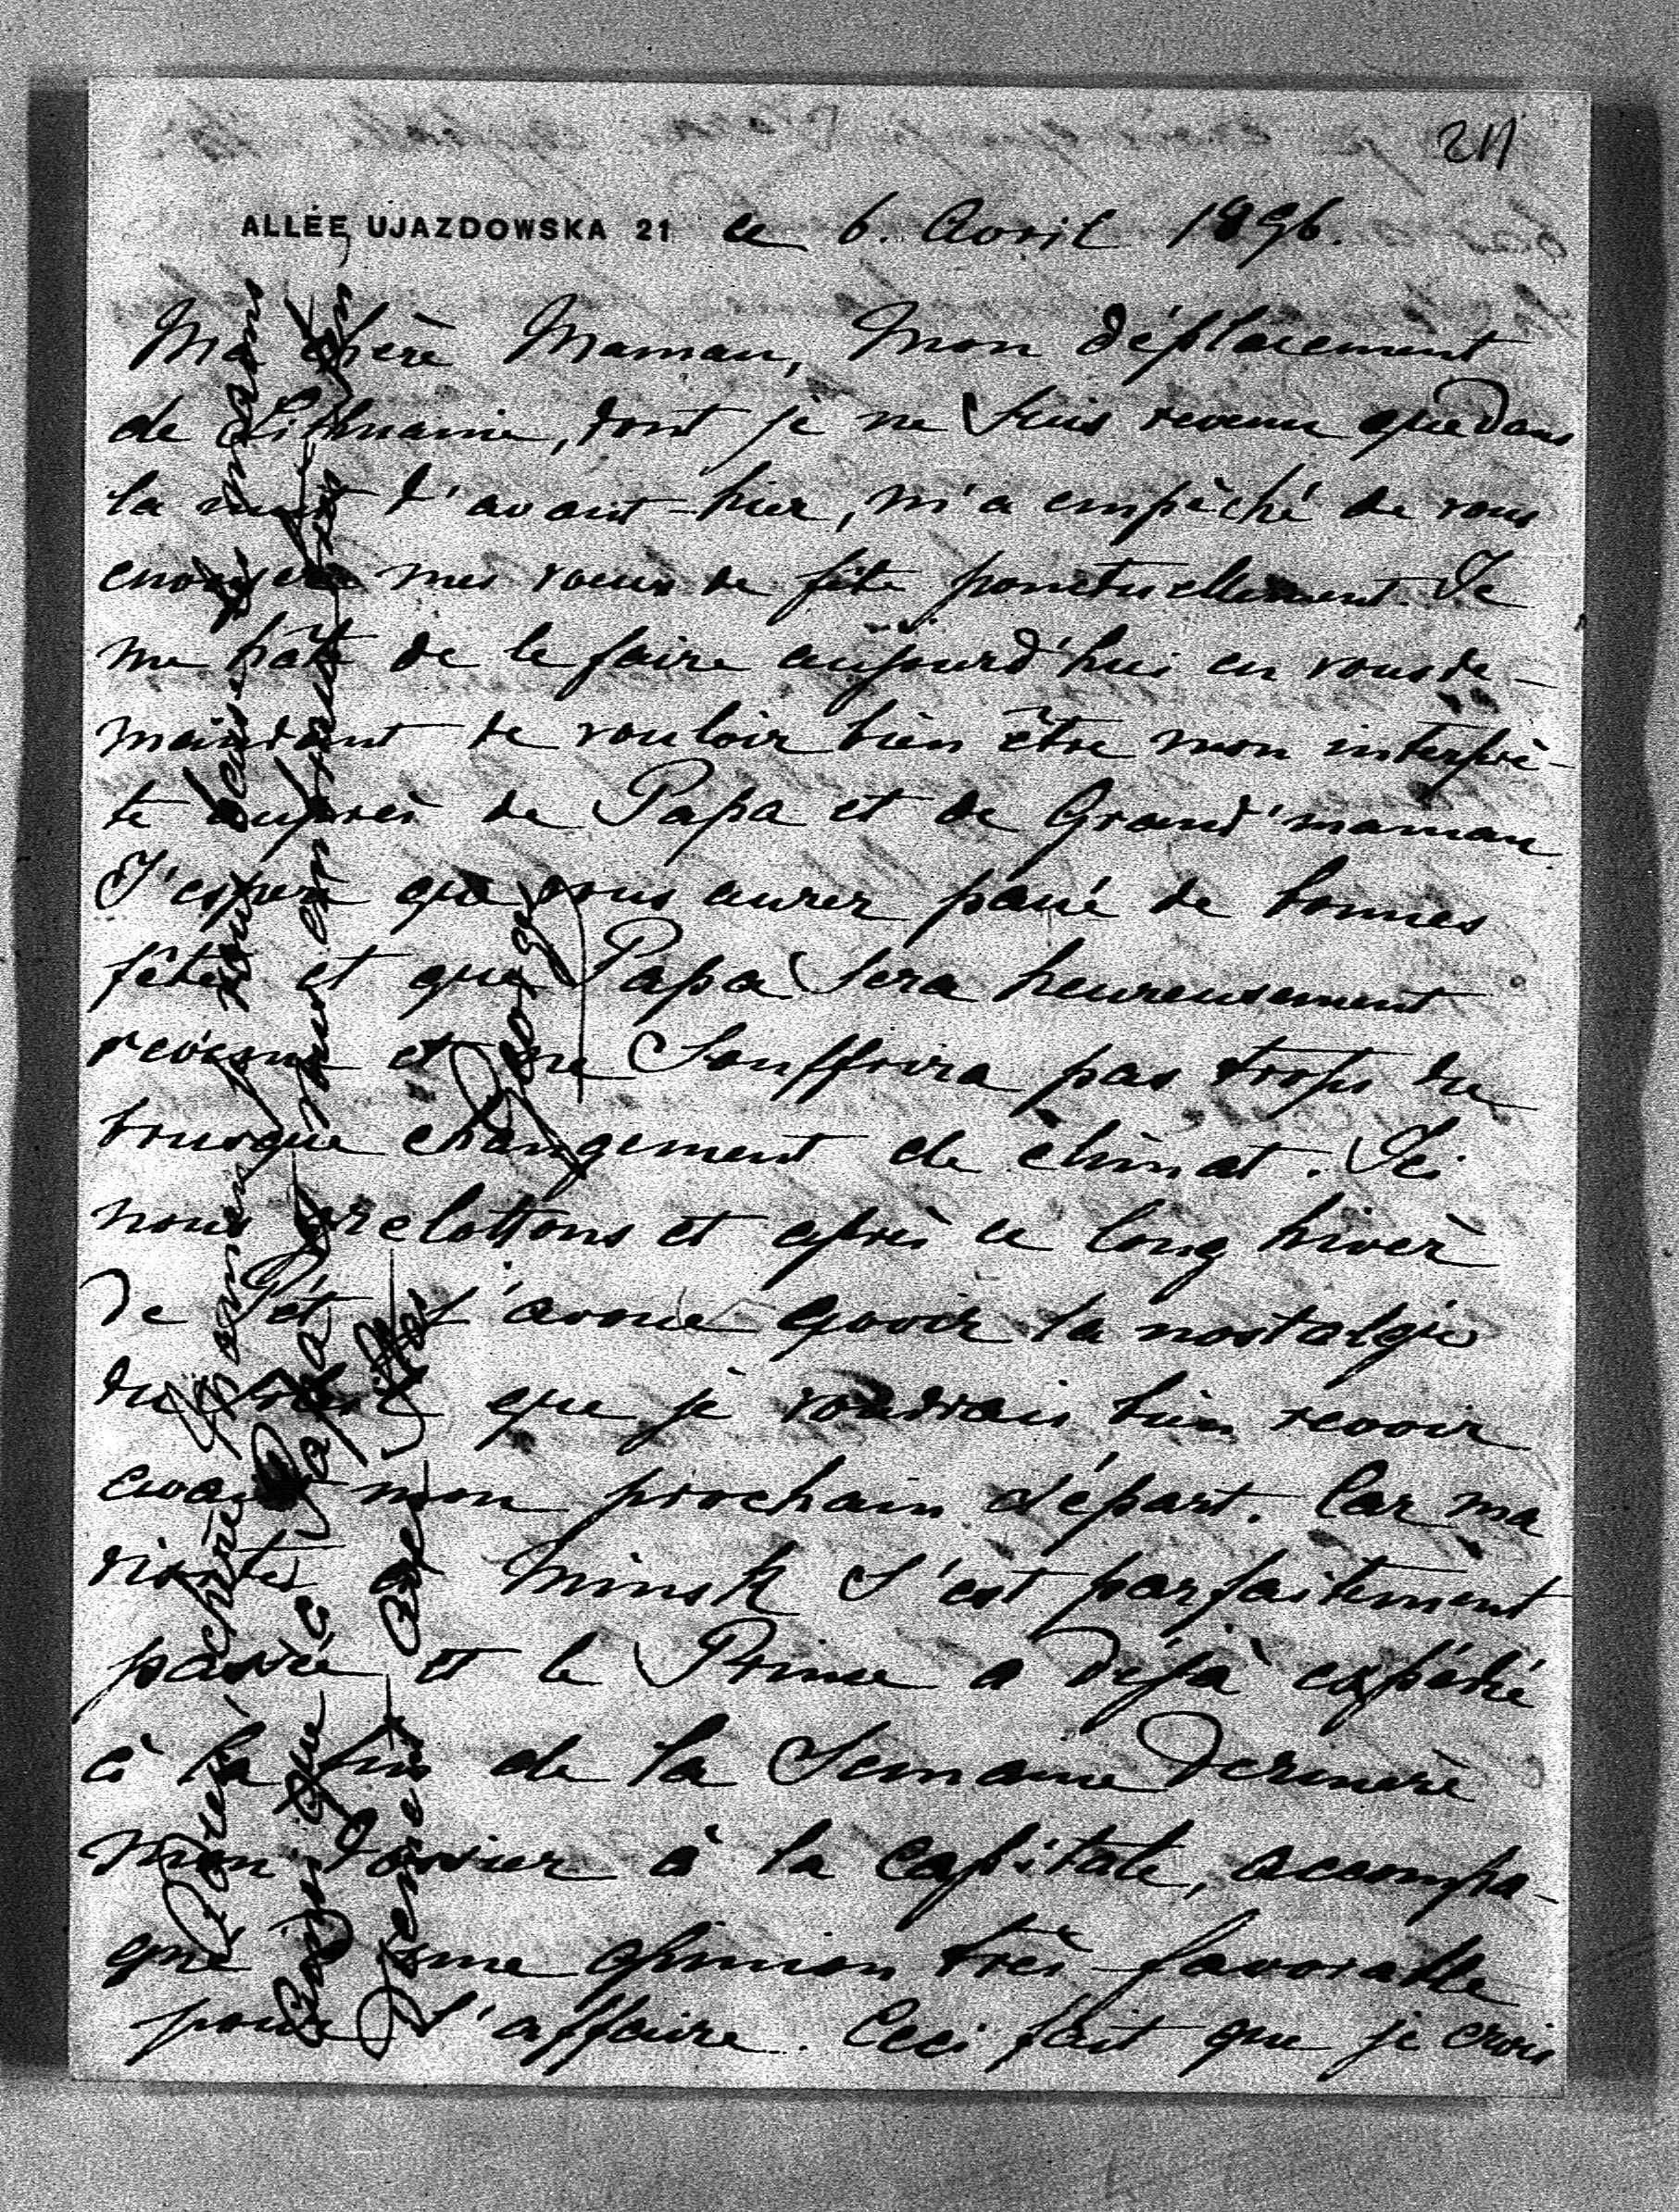 211
ALLÉE UJAZDOWSKA 21 ce 6. Avril 1896.
Ma chère Maman, Mon déplacement
de Lithuanie, dont je ne suis revenu que dans
la nuit d'avant-hier, m'a empêché de vous
envoyer mes voeux de fête ponctuellement. Je
me hâte de le faire aujourd'hui en vous de-
mandant de vouloir bien être mon interprè-
te auprès de Papa et de Grand'maman
J'espère que vous aurez passé de bonnes
fêtes et que Papa sera heureusement
revenu et ne souffrira pas trop du
brusque changement de climat. Ici
nous grelottons et après ce long hiver
de Pét. j'avoue avoir la nostalgie
du soleil que je voudrais bien revoir
avant mon prochain départ. Car ma
visite à Minsk s'est parfaitement
passée et le Prince a déjà expédié
à la fin de la semaine dernière
mon dossier à la capitale, accompa-
gné d'une opinion très favorable
pour l'affaire. Ceci fait que je crois
chère Maman, vous baise les mains
ainsi que Papa
George